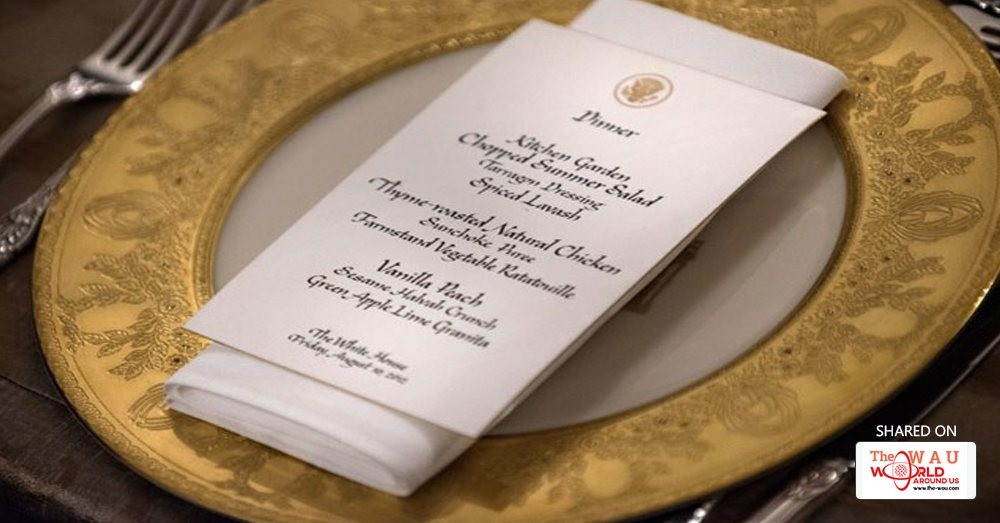 Dinner
Kitchen Garden
Chopped Summer Salad
Tarragon Dressing
Spiced Lavash
Thyme-roasted Natural Chicken
Sunchoke Puree
Farmstand Vegetable Ratatouille
Vanilla Peach
Sesame Halvah Crunch
Green Apple Lime Granita
The White House
Friday, August 10, 2012
SHARED ON
The WAU
WORLD
AROUND US
www.the-wau.com